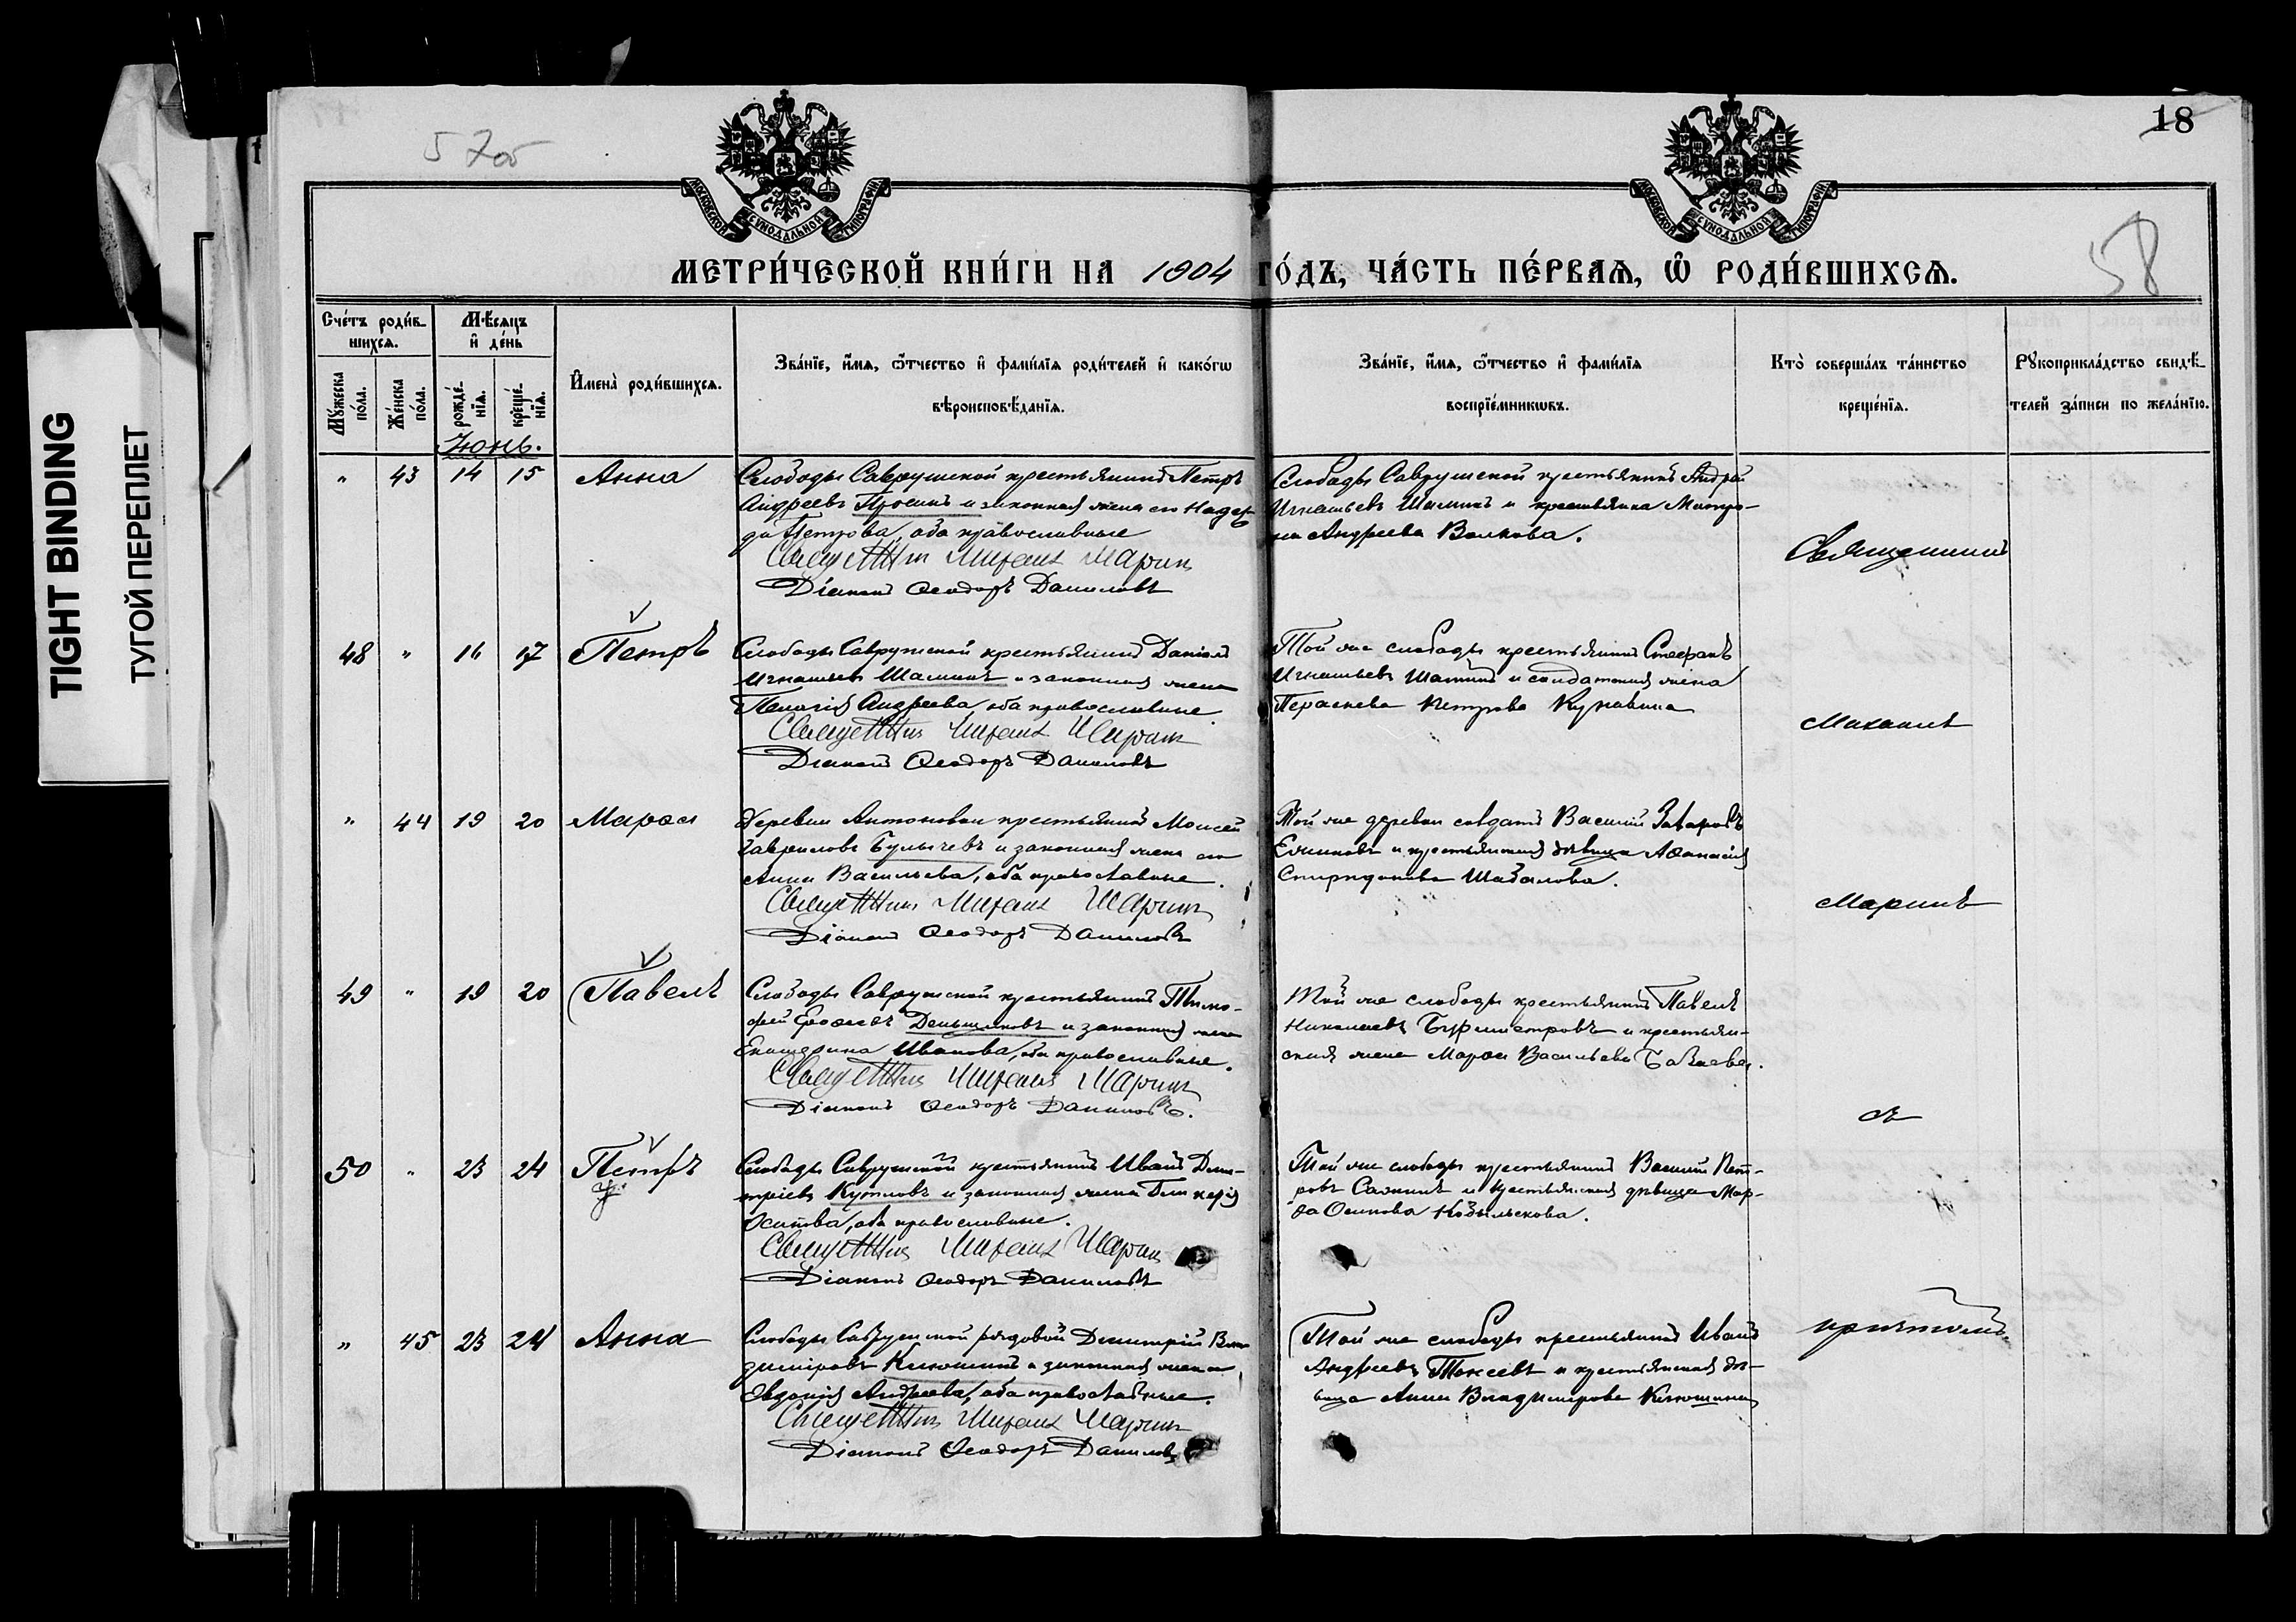 TIGHT BINDING
ТУГОЙ ПЕРЕПЛЕТ
18
57об
58
МОСКОВСКОЙ СѴНОДАЛЬНОЙ ТИПОГРАФІИ
МОСКОВСКОЙ СѴНОДАЛЬНОЙ ТИПОГРАФІИ
МЕТРИ́ЧЕСКОЙ КНИ́ГИ НА 1904 ГО́ДЪ, ЧА́СТЬ ПЕ́РВАѦ, Ѽ РОДИ́ВШИХСѦ.
Сче́тъ роди́в-
шихсѧ.
Мꙋ́жеска по́ла.
Же́нска по́ла.
Мѣ́сѧцъ и҆ де́нь
рожде́-
нїѧ.
креще́-
нїѧ.
И҆мена̀ роди́вшихсѧ.
Зва́нїе, и҆́мѧ, ѻ҆́тчество и҆ фами́лїѧ роди́телей и҆ како́гѡ
вѣроисповѣ́данїѧ.
Зва́нїе, и҆́мѧ, ѻ҆́тчество и҆ фами́лїѧ
воспрїе́мникѡвъ.
Кто̀ соверша́лъ та́инство
креще́нїѧ.
Рꙋкоприкла́дство свидѣ́-
телей за́писи по жела́нїю.
Іюнь.
" 43 14 15 Анна
Слободы Саврушской крестьянинъ Петръ
Андреевъ и законная жена его Надеж-
да Петрова, оба православные
Священник Михаил Марин
Діаконъ Ѳеодоръ Даниловъ
Слободы Саврушской крестьянинъ Андрей
Игнатьевъ Шашинъ и крестьянка Матро-
на Андреева Волкова.
Священникъ
48 " 16 17 Петръ
Слободы Саврушской крестьянинъ Даніилъ
Игнатьевъ Шашинъ и законная жена
Пелагія Андреева, оба православные.
Священник Михаил Марин
Діаконъ Ѳеодоръ Даниловъ
Той же слободы крестьянинъ Стефанъ
Игнатьевъ Шашинъ и солдатская жена
Параскева Петрова
Михаилъ
" 44 19 20 Марѳа
Деревни Антоновки крестьянинъ Моисей
Гавриловъ Булычевъ и законная жена его
Анна Васильева, оба православные.
Священник Михаил Марин
Діаконъ Ѳеодоръ Даниловъ
Той же деревни солдатъ Василій Захаровъ
и крестьянская дѣвица Аѳанасія
Спиридонова Шабалова.
Маринъ
49 " 19 20 Павелъ
Слободы Саврушской крестьянинъ Тимо-
фей Деньщиковъ и законная жена
Екатерина Иванова, оба православные.
Священник Михаил Марин
Діаконъ Ѳеодоръ Даниловъ.
Той же слободы крестьянинъ Павелъ
Николаевъ Бурмистровъ и крестьян-
ская жена Марѳа Васильева
съ
50 " 23 24 Петръ
Слободы Саврушской крестьянинъ Иванъ Дми-
тріевъ и законная жена Гликерія
Осипова, оба православные.
Священник Михаил Марин
Діаконъ Ѳеодоръ Даниловъ
Той же слободы крестьянинъ Василій Пет-
ровъ и крестьянская дѣвица Мар-
ѳа Осипова Кобылскова.
причтомъ
" 45 23 24 Анна
Слободы Саврушской рядовой Димитрій Вла-
диміровъ Кинюшинъ и законная жена
Евдокія Андреева, оба православные.
Священник Михаил Марин
Діаконъ Ѳеодоръ Даниловъ
Той же слободы крестьянинъ Иванъ
Андреевъ и крестьянская дѣ-
вица Анна Владимірова Кинюшина